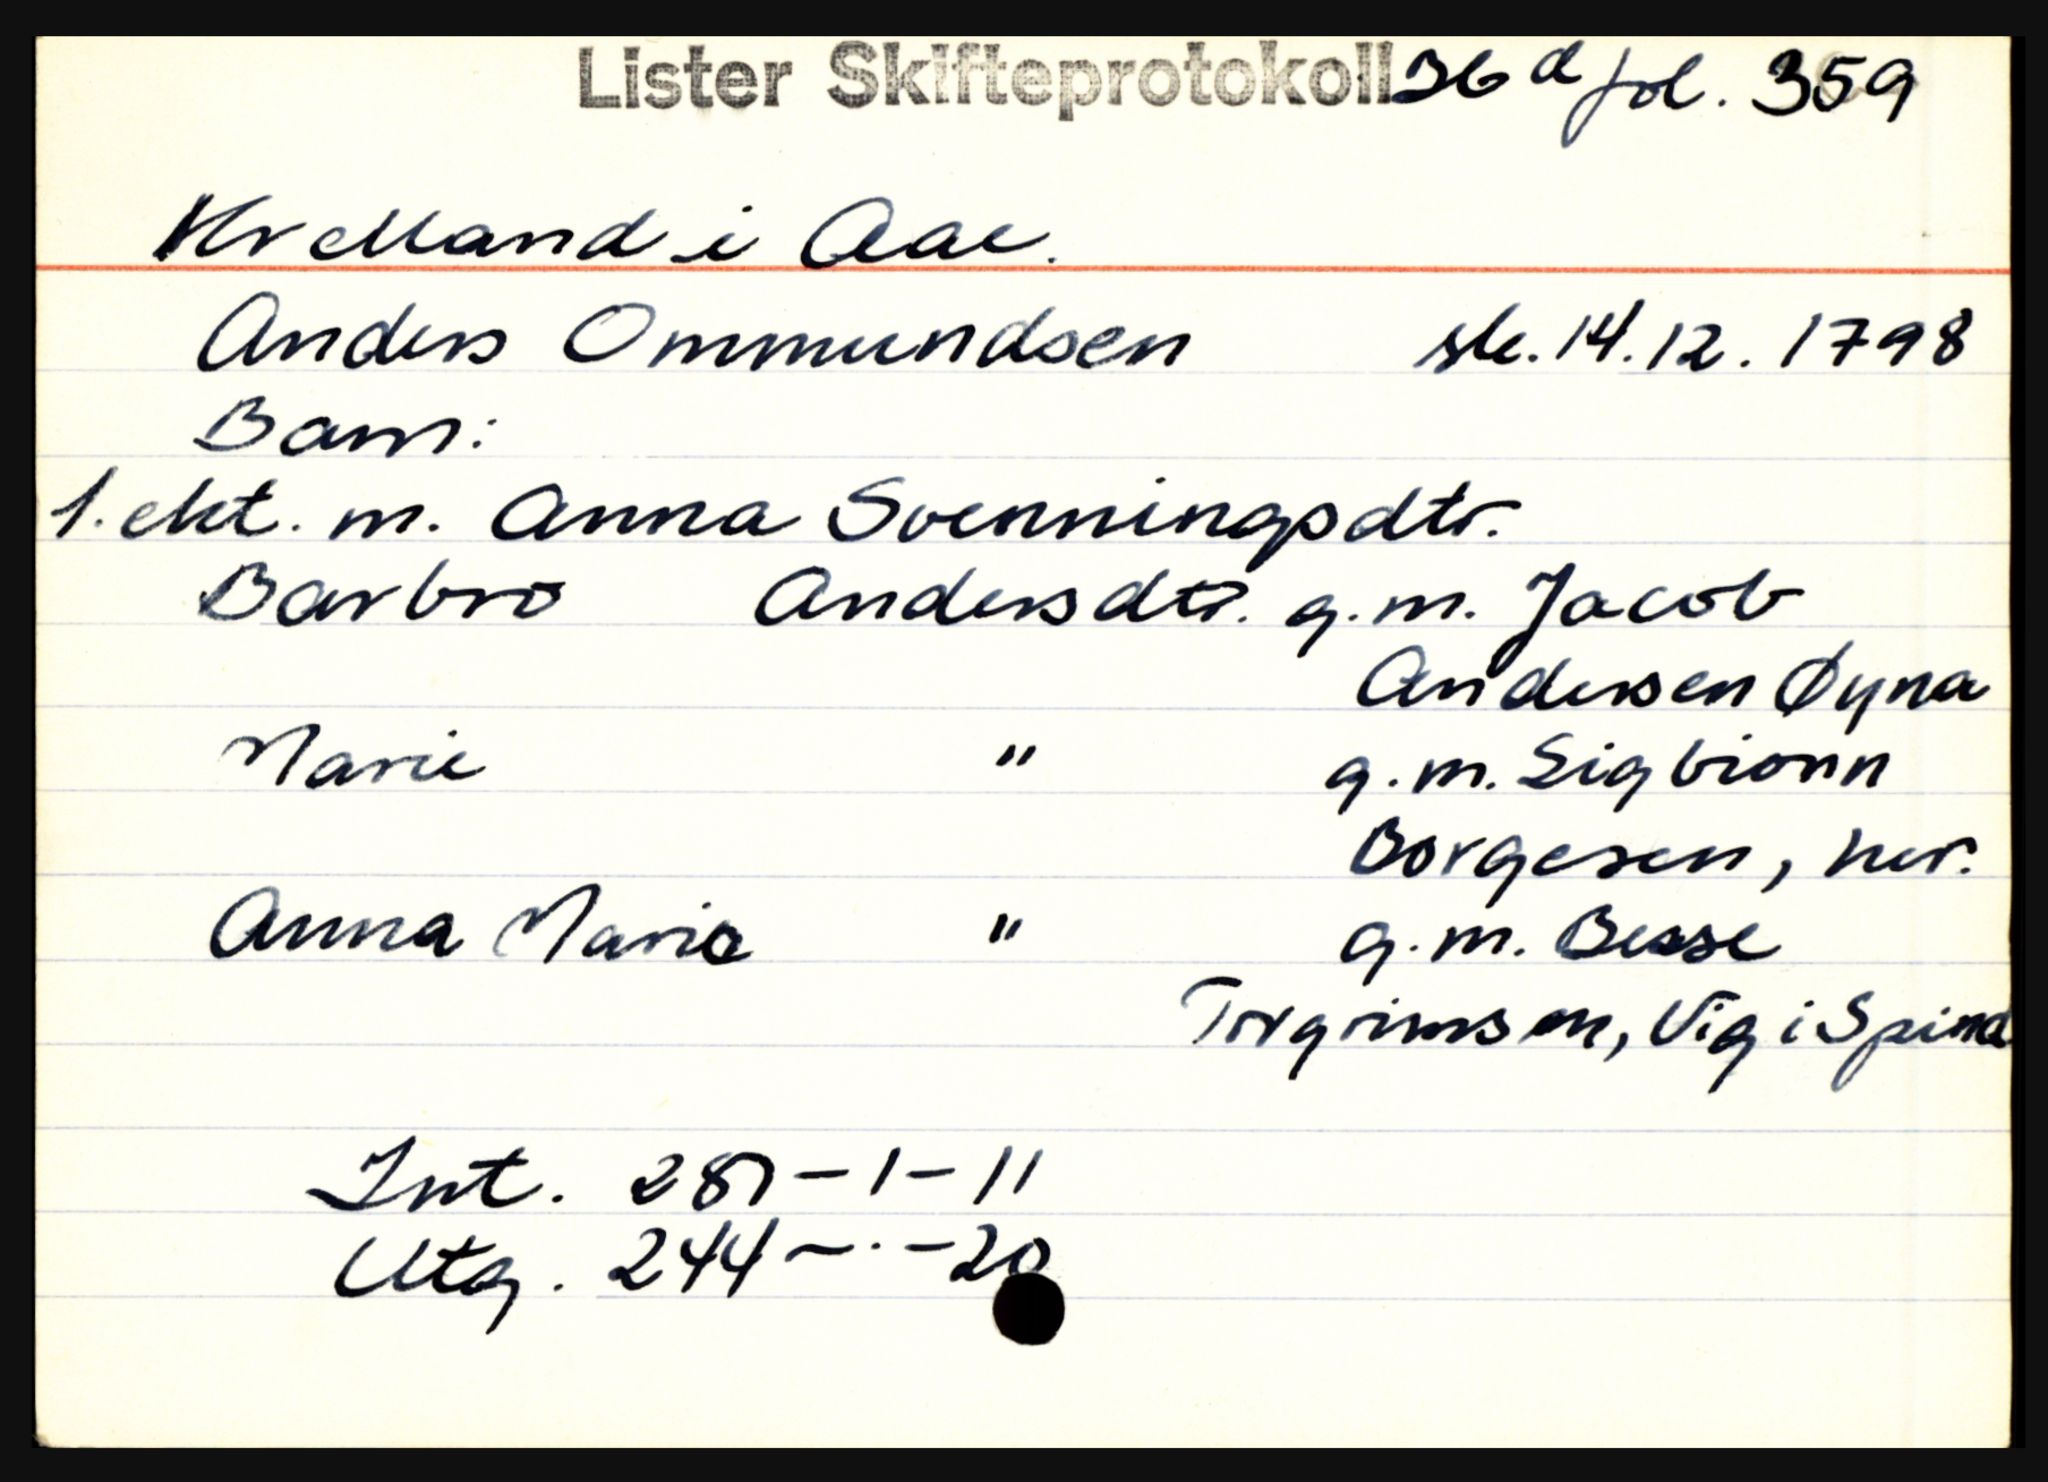 Lister Skifteprotokoll 36 d fol. 359
Kvelland i Aae.
Anders Ommundsen sk. 14.12.1798
Barn:
1. ekt. m. Anna Svenningsdtr.
Barbro Andersdtr. g.m. Jacob
Andersen Øyna
Marie " g.m. Sigbiorn
Borgesen, her.
Anna Maria " g.m. Besse
Torgrimsen, Vig i Spind
Int. 287-1-11
Utg. 244-·-20